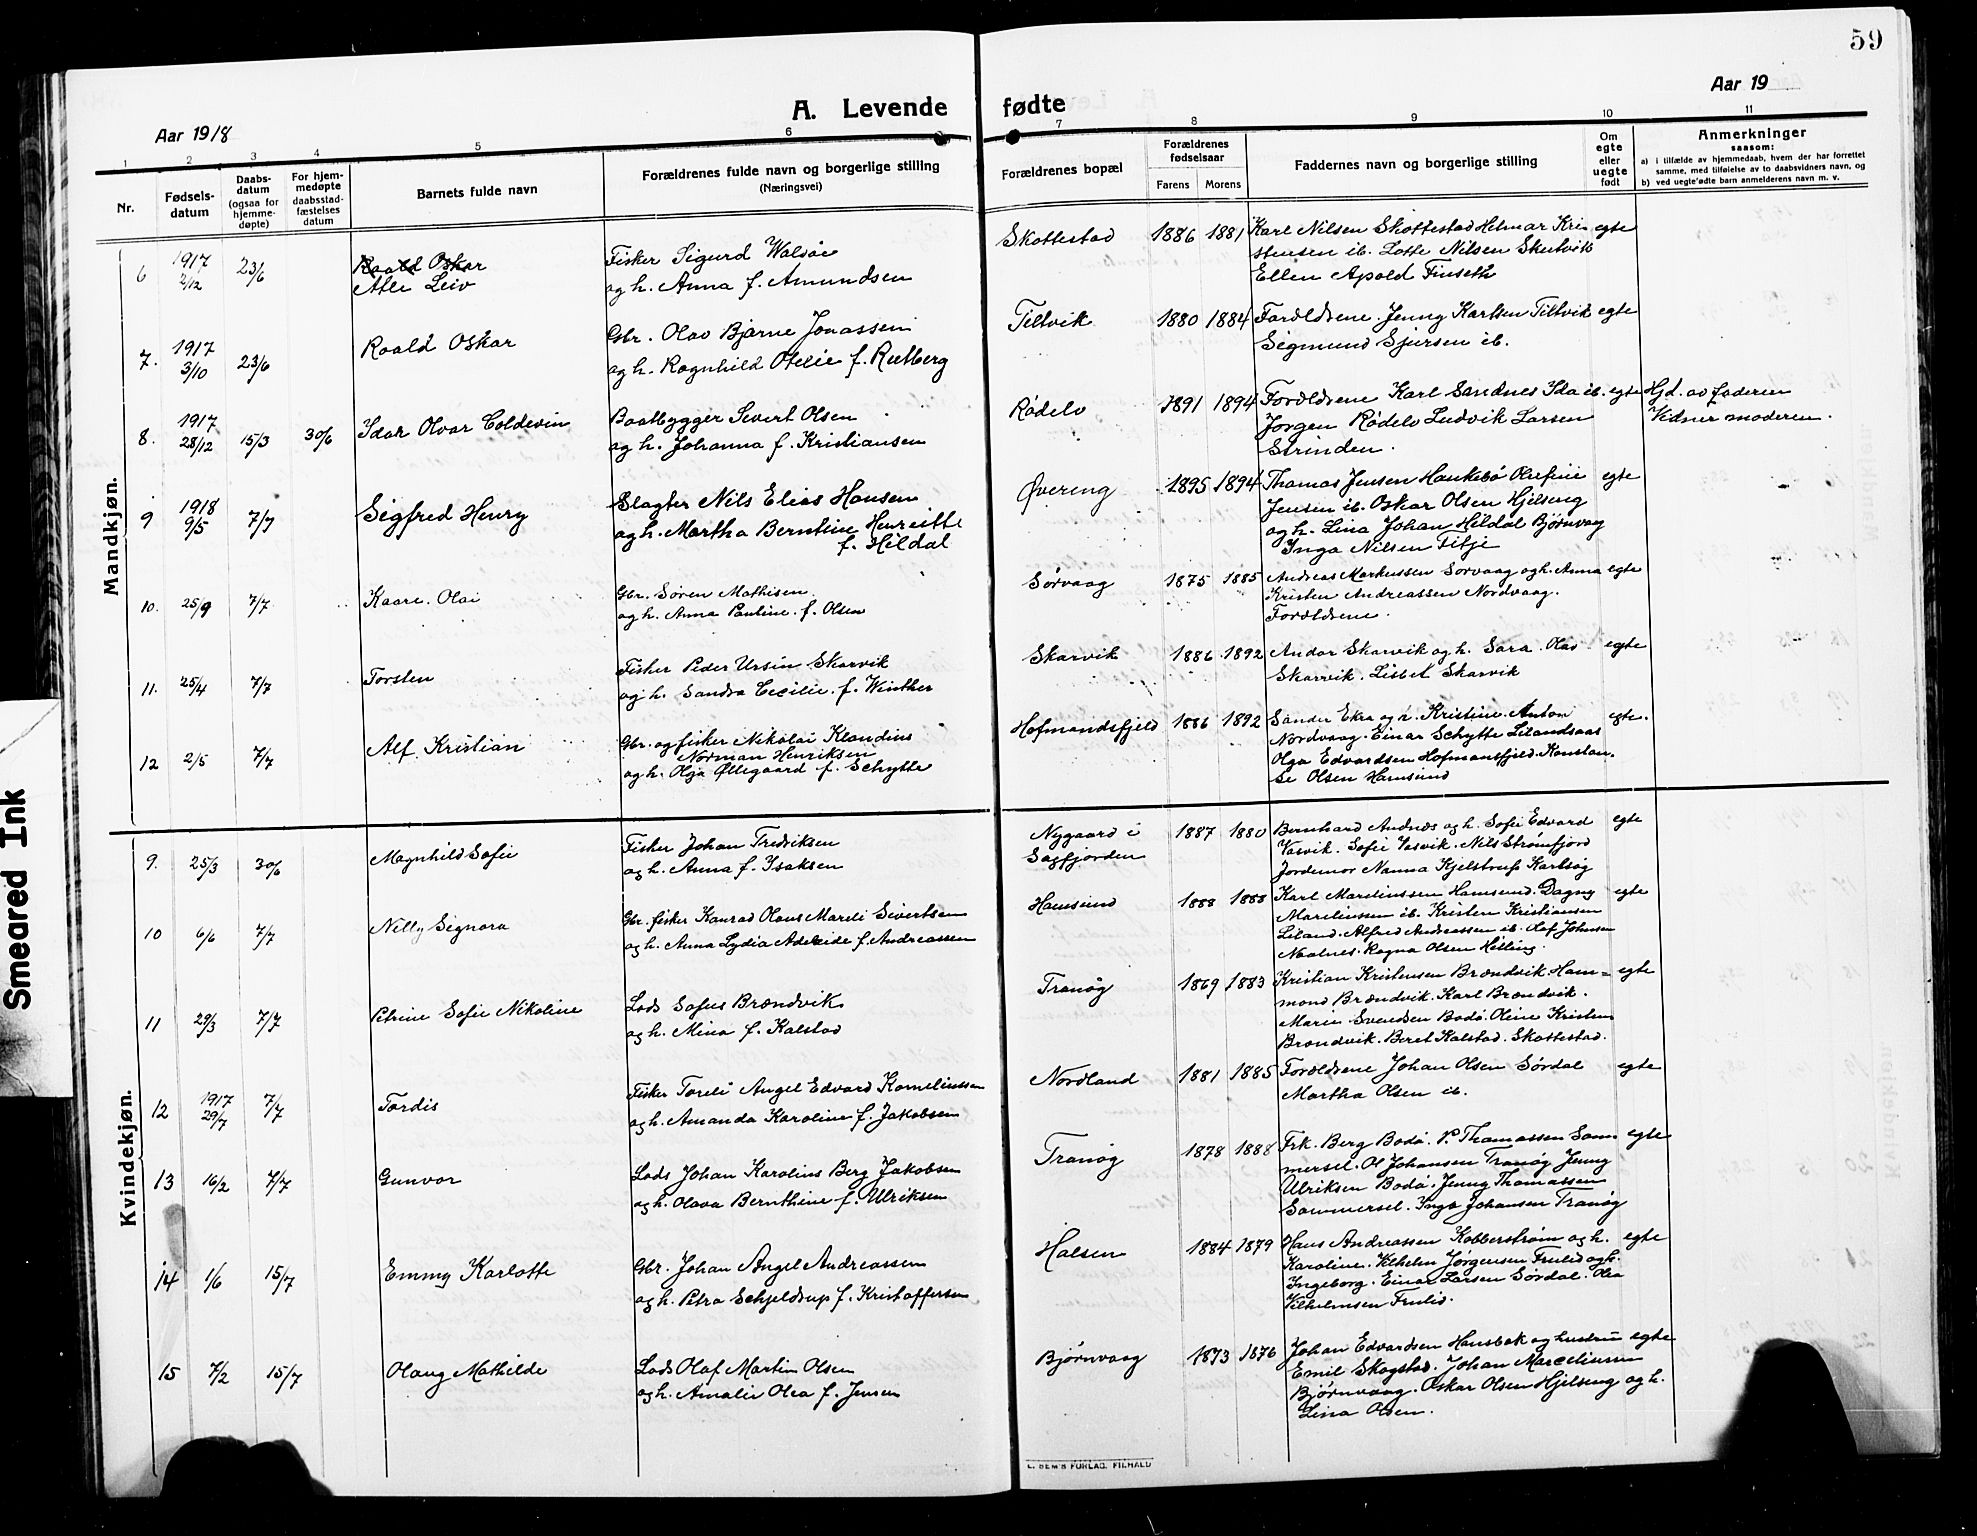 59
Aar 1918
A. Levende fødte
Aar 19
1 2 3 4 5 6 7 8 9 10 11
Nr.
Fødsels-
datum
Daabs-
datum
(ogsaa for
hjemme-
døpte)
For hjem-
medøpte
daabsstad-
fæstelses
datum
Barnets fulde navn
Forældrenes fulde navn og borgerlige stilling
(Næringsvei)
Forældrenes bopæl
Forældrenes
fødselsaar
Farens Morens
Faddernes navn og borgerlige stilling
Om
egte
eller
uegte
født
Anmerkninger
saasom:
a) i tilfælde av hjemmedaab, hvem der har forrettet
samme, med tilføielse av to daabsvidners navn, og
b) ved uegte fødte barn anmelderens navn m. v.
Mandkjøn.
6 1917 2/12 23/6
Roald Oskar
Atle Leiv
Fisker Sigurd Walsøe
og h. Anna f. Amundsen
Skottestad 1886 1881
Karl Nilsen Skottestad Helmar Kri
stensen ib. Lotte Nilsen Skutvik
Ellen Apold Finseth
egte
7. 1917 3/10 23/6
Roald Oskar
Gbr. Olav Bjarne Jonassen
og h. Ragnhild Otelie f. Rutberg
Tiltvik 1880 1884
Forældrene. Jenny Karlsen Tiltvik
Sigmund Sjursen ib.
egte
8. 1917 28/12 15/3 30/6
Idar Olvar Coldevin
Baatbygger Sivert Olsen
og h. Johanna f. Kristiansen
Rødelv 1891 1894
Forældrene Karl Sandnes Ida ib.
Jørgen Rødelv Ludvik Larsen
Strinden.
egte
Hjd. av faderen
Vidner moderen.
9 1918 9/5 7/7
Sigfred Henry
Slagter Nils Elias Hansen
og h. Martha Berntine Henriette
f. Hildal
Øvereng 1895 1894
Thomas Jensen Hankebø Olufine
Jensen ib. Oskar Olsen Hjilseng
og h. Lina Johan Hildal Bjørnvaag
Inga Nilsen Tilje
egte
10. 25/9 7/7
Kaare. Olai
Gbr. Søren Mathisen
og h. Anna Pauline. f. Olsen
Sørvaag 1875 1885
Andreas Markussen Sørvaag og h. Anna
Kristen Andreassen Nordvaag.
Forældrene.
egte
11. 25/4 7/7
Torsten
Fisker Peder Ursin Skarvik
og h. Sandra Cecilie. f. Winther
Skarvik 1886 1892
Andor Skarvik og h. Sara. Olav
Skarvik. Lisbet Skarvik
egte
12 2/5 7/7
Alf. Kristian
Gbr. og fisker Nikolai Klaudius
Norman Henriksen
og h. Olga Øllegaard f. Schytte
Hofmandsfjeld 1886 1892
Sander Ekra og h. Kristine. Anton
Nordvaag. Einar Schytte Lilandsaas
Olga Edvardsen Hofmansfjeld. Konstan.
se Olsen Hamsund
egte.
Kvindekjøn.
9. 25/3 30/6
Magnhild Sofie
Fisker Johan Fredriksen
og h. Anna f. Isaksen
Nygaard i
Sagfjorden
1887 1880
Bernhard Andnæs og h. Sofie Edvard
Vasvik. Sofie Vasvik. Nils Strømfjord
Jordemor Nanna Kjelstrup Karlsøy
egte
10 6/6 7/7
Nelly Signora
Gbr. fisker Konrad Olaus Mareli Sivertsen
og h. Anna Lydia Adeleide f. Andreassen
Hamsund 1888 1888
Karl Mareliussen Hamsund. Dagny
Mareliussen ib. Kristen Kristiansen
Liland. Alfred Andreassen ib. Olaf Johnsen
Naalnes. Ragna Olsen Helling.
egte
11 29/3 7/7
Petrine Sofie Nikoline
Lods Sofus Brændvik
og h. Mina f. Kalstad
Tranøy 1869 1883
Kristian Kristensen Brændvik Ham=
mond Brændvik. Karl Brændvik.
Marie Svendsen Bodø. Oline Kristens
Brændvik. Beret Kalstad. Skottestad.
egte
12 1917 29/7 7/7
Tordis
Fisker Toreli Angel Edvard Kornelinssen
og h. Amanda Karoline f. Jakobsen
Nordland 1881 1885
Forældrene Johan Olsen Sørdal
Martha Olsen ib.
egte
13 16/2 7/7
Gunvor
Lods Johan Karolius Berg Jakobsen
og h. Olava Bernthine f. Ulriksen
Tranøy 1878 1888
Frk. Berg Bodø. P. Thomassen Som.
mersel. Ol Johansen Tranøy Jenny
Ulriksen Bodø. Jenny Thomassen
Sommersel. Inga Johansen Tranøy
egte
14 1/6 15/7
Emmy Karlotte
Gbr. Johan Angel Andreassen
og h. Petra Schjeldrup f. Kristoffersen
Halsen 1884 1879
Hans Andreassen Kobberstrøm og h.
Karoline. Vilhelm Jørgensen Frulid og h.
Ingeborg. Einar Larsen Sørdal. Olea
Vilhelmsen Frulid.
egte
15 7/2 15/7
Olaug Mathilde
Lods Olaf Martin Olsen
og h. Amalie Olea f. Jensen
Bjørnvaag 1873 1876
Johan Edvardsen Hansbak og hustru
Emil Skogstad. Johan Marceliussen
Bjørnvaag. Oskar Olsen Hjilseng og h.
Lina Olsen.
egte
Smeared Ink